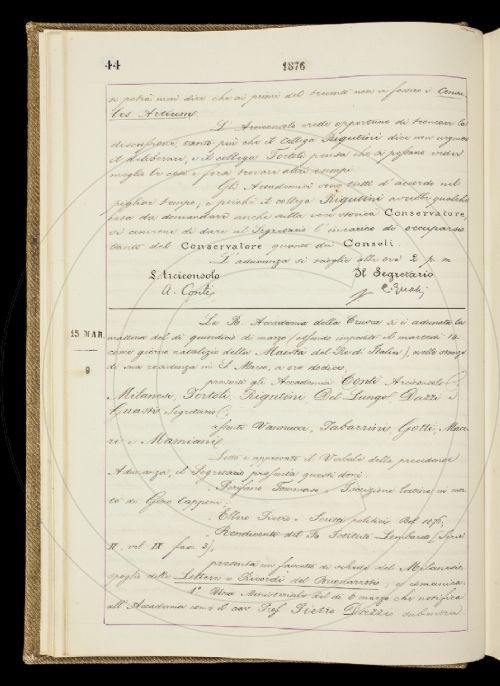 44
1876
si potrà mai dire che ai primi del trecento non ci fossero i Consu
les Artium.
L'Arciconsolo crede opportuno di troncar la
discussione, tanto più che il collega Rigutini dice non urgere
il deliberare, e il collega Tortoli pensa che si possano veder
meglio le cose e forse trovare altri esempi.
Gli Accademici sono tutti d'accordo nel
pigliar tempo, e perchè il collega Rigutini avrebbe qualche
cosa da domandare anche sulla voce storica Conservatore,
si conviene di dare al Segretario l'incarico di occuparsi
tanto del Conservatore quanto dei Consoli.
L'adunanza si scioglie alle ore 2 p. m
L'Arciconsolo Il Segretario
A. Conti C. Guasti
La R. Accademia della Crusca si è adunata la
mattina del dì quindici di marzo (essendo impedito il martedì 14
come giorno natalizio della Maestà del Re d'Italia), nelle stanze
di sua residenza in S. Marco, a ore dodici,
15 MAR.
9
presenti gli Accademici Conti Arciconsolo,
Milanesi, Tortoli, Rigutini, Del Lungo, Dazzi e
Guasti Segretario;
assenti Vannucci, Tabarrini, Gotti, Mau
ri e Mamiani.
Letto e approvato il Verbale della precedente
Adunanza, il Segretario presenta questi doni:
Tommaso - Iscrizione in mor
te di Gino Capponi.
Ellero Pietro - Scritti politici. Bol. 1876;
Rendiconti del R. Istituto Lombardo, Serie
II, vol. IX fasc. 2;
presenta un fascetto di schede del Milanesi,
spoglio delle Lettere e Ricordi del Buonarroti; e comunica:
1° Una Ministeriale del dì 6 marzo che notifica
all'Accademia come il cav. Prof. Pietro Dazzi subentra